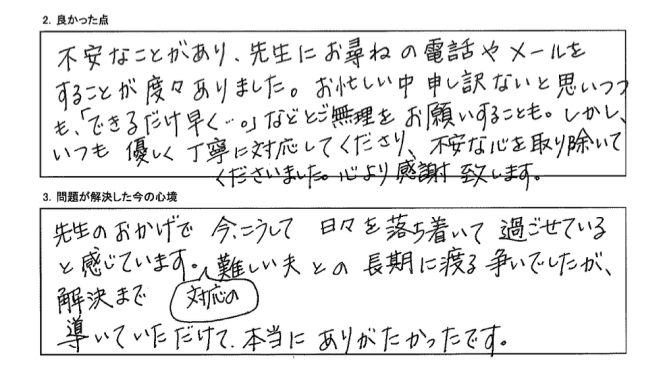 2. 良かった点
不安なことがあり、先生にお尋ねの電話やメールを
することが度々ありました。お忙しい中 申し訳ないと思いつつ
も、「できるだけ早く…。」などとご無理をお願いすることも。しかし、
いつも 優しく丁寧に対応してくださり、不安な心を取り除いて
くださいました。心より感謝致します。
3. 問題が解決した今の心境
先生のおかげで 今、こうして 日々を落ち着いて 過ごせている
と感じています。難しい夫との長期に渡る争いでしたが、
解決まで 対応の
導いていただけて、本当に ありがたかったです。